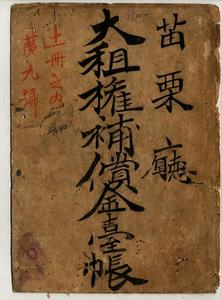 苗栗廳
大租權補償金臺帳
土冊之內
第九號